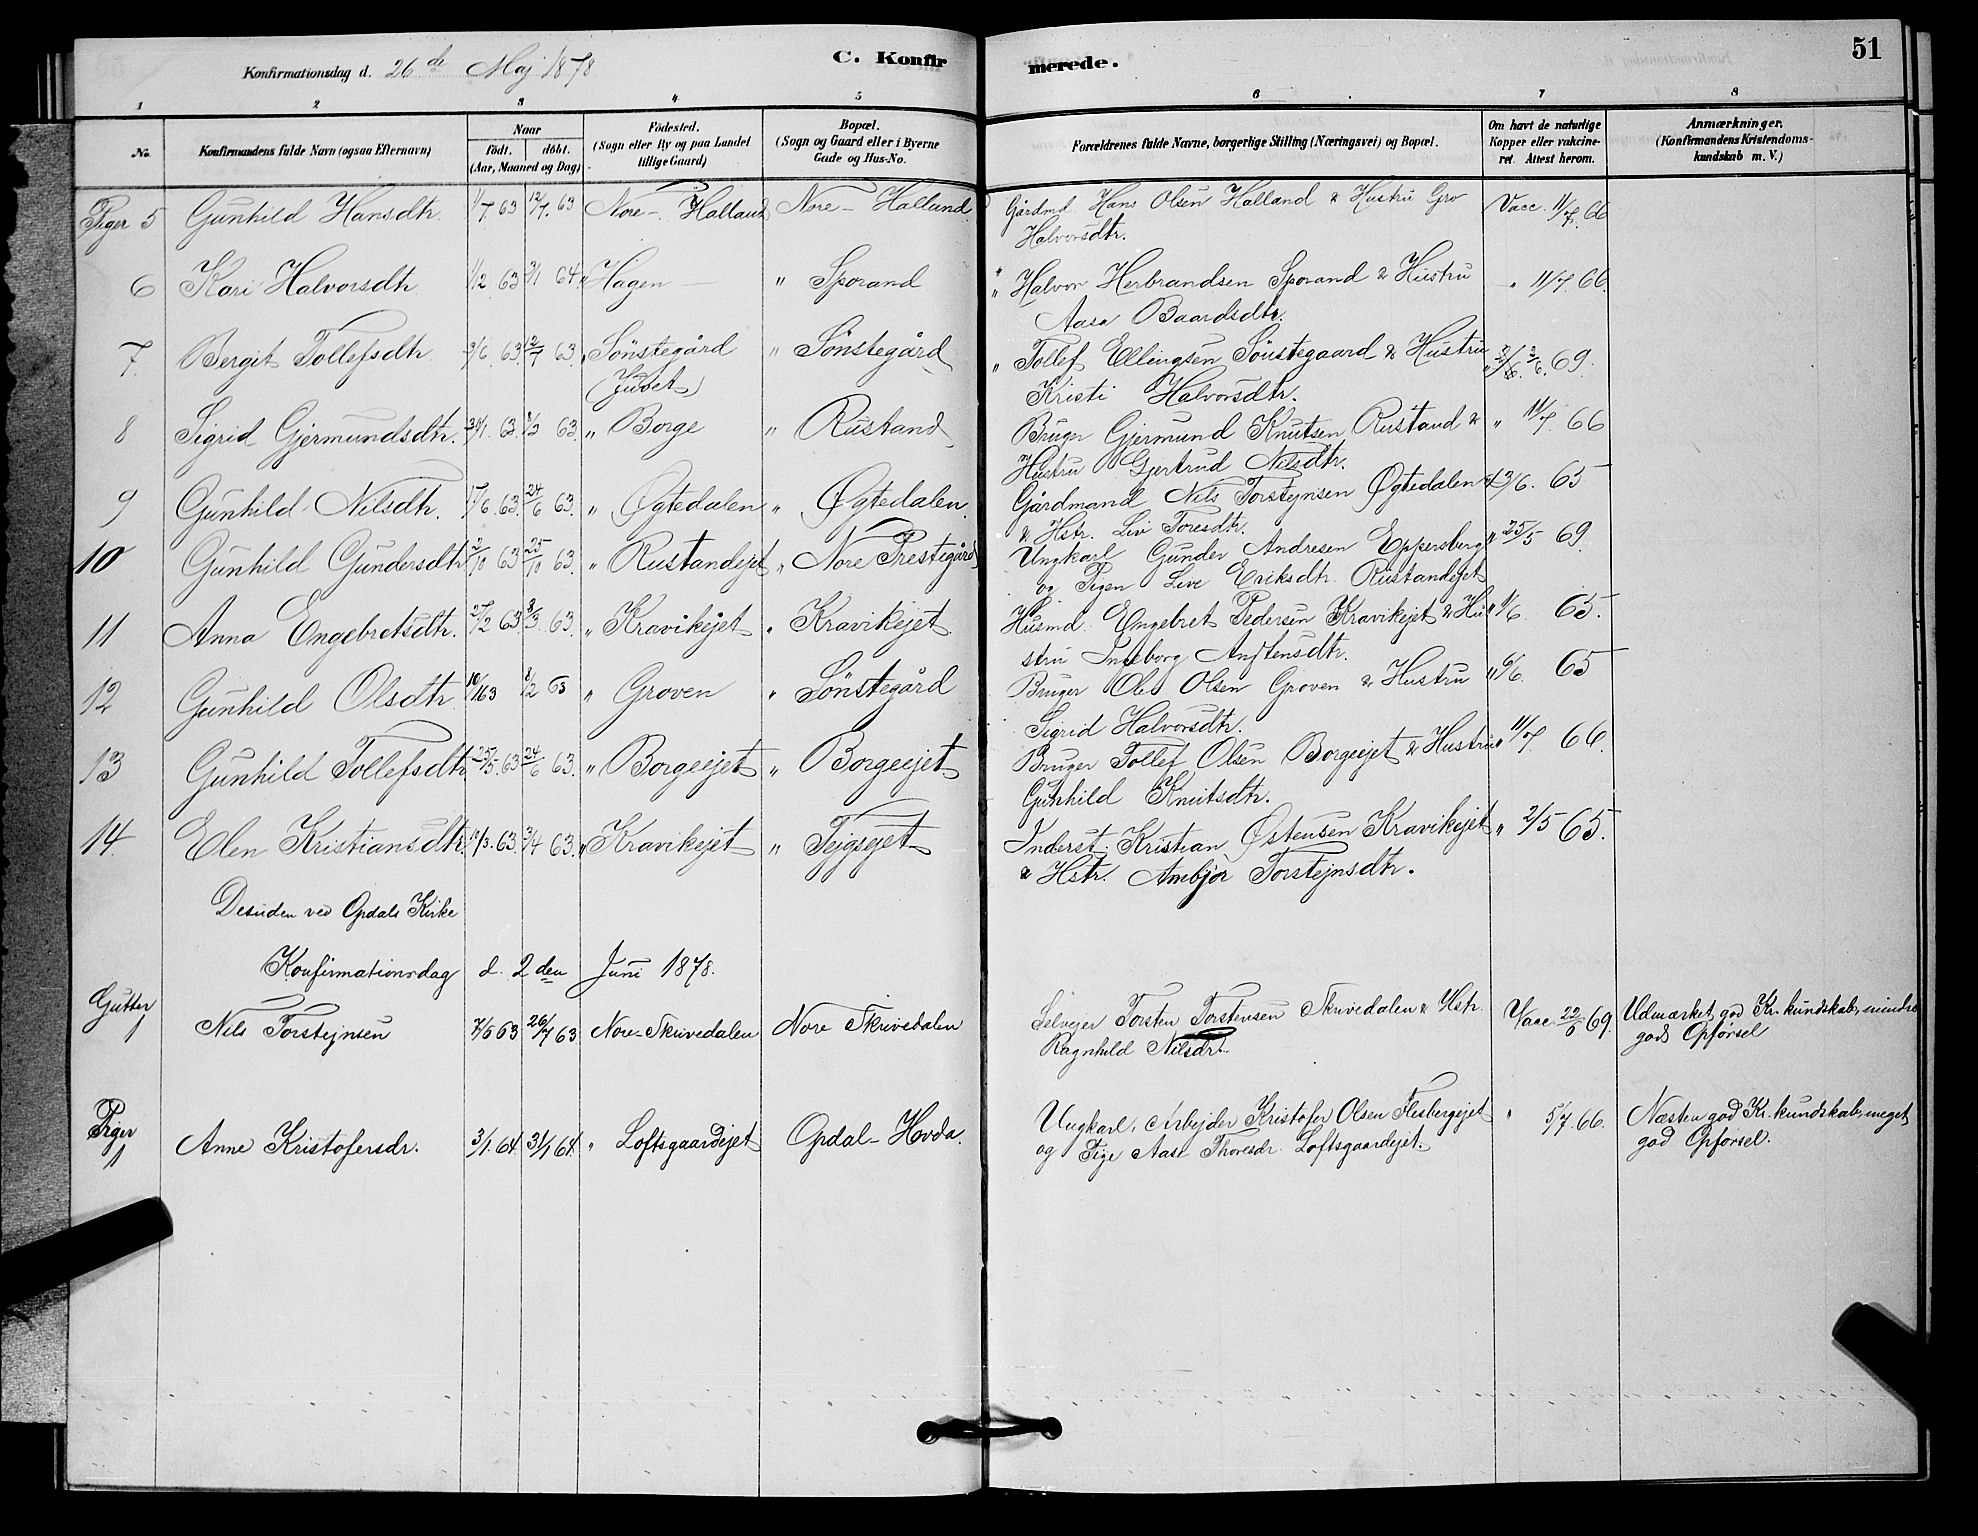 Konfirmationsdag d. 26de Maj 1878.
C. Konfirmerede.
51
1 2 3 4 5 6 7 8
No.
Konfirmandens fulde Navn (ogsaa Efternavn)
Naar
födt. döbt.
(Aar, Maaned og Dag)
Födested.
(Sogn eller By og paa Landet
tillige Gaard)
Bopæl.
(Sogn og Gaard eller i Byerne
Gade og Hus-No.
Forældrenes fulde Navne, borgerlige Stilling (Næringsvei) og Bopæl.
Om havt de naturlige
Kopper eller vakcine-
ret. Attest herom.
Anmærkninger.
(Konfirmandens Kristendoms-
kundskab m. V.)
Piger 5 Gunhild Hansdtr. 1/7 63 12/7. 63 Nore - Halland Nore - Halland Gårdmd. Hans Olsen Halland & Hustru Gro Vacc. 11/7. 66
Halvorsdtr.
6 Kari Halvorsdtr 1/12 63 3/1 64 " Hagen " Sporand " Halvor Herbrandsen Sporand & Hustru " 11/7. 66.
Aase Baardsdtr.
7. Bergit Tollefsdtr 3/6. 63. 12/7 63. " Sönstegård " Sönstegård " Tollef Ellingsen Sönstegaard & Hustru 69.
(Juvet) Kristi Halvorsdtr.
8 Sigrid Gjermundsdtr. 63. 63. " Borge " Rustand Bruger Gjermund Knutsen Rustand & " 11/7. 66
Hustru Gjertrud Nilsdtr.
9 Gunhild Nilsdtr. 17/6. 63. 24/6 63. " Øgtedalen " Øgtedalen Gårdmand Nils Torstejnsen Øgtedalen 65
& Hstr. Liv Toresdtr.
10 Gunhild Gundersdtr 2/10 63 25/10 63. " Rustandejet " Nore Prestegård Ungkarl Gunder Andresen Eppersberg " 25/5 69.
og Pigen Live Eriksdtr. Rustandejet
11 Anna Engebretsdtr. 27/2 63 8/3. 63. " Kravikejet " Kravikejet Husmd. Engebret Pedersen Kravikejet & Hu " 1/6. 65.
stru Ingeborg Anftensdtr.
12 Gunhild Olsdtr. 10/1 63 8/2 63 " Groven " Sönstegård Bruger Ole Olsen Groven & Hustru " 6/6. 65
Sigrid Halvorsdtr.
13 Gunhild Tollefsdtr 25/5. 63 24/6 63. " Borgeejet " Borgeejet Bruger Tollef Olsen Borgeejet & Hustru " 11/7. 66.
Gunhild Knutsdtr.
14. Elen Kristiansdtr. 63. 3/4 63. " Kravikejet " Tejgsejet Inderst Kristian Østensen Kravikejet " 2/5 65.
& Hstr. Ambjør Torstejnsdtr.
Desuden ved Opdals Kirke
Konfirmationsdag d. 2den Juni 1878.
Gutter
1 Nils Torstejnsen 7/6 63 26/7 63 Nore-Skrivedalen Nore Skrivedalen Selvejer Torsten Torstensen Skrivedalen & Hstr. Vacc. 22/6 69. Udmærket god Kr. kundskab, mindre
Ragnhild Nilsdr. god Opførsel
Piger
1 Anne Kristofersdr. 3/1. 64. 31/1 64. " Loftsgaardejet Opdal - Hovda. Ungkarl, Arbejder Kristofer Olsen Flesbergejet " 5/7. 66. Næsten god Kr. kundskab, meget
og Pige Aase Thoresdr. Loftsgaardejet. god Opførsel.